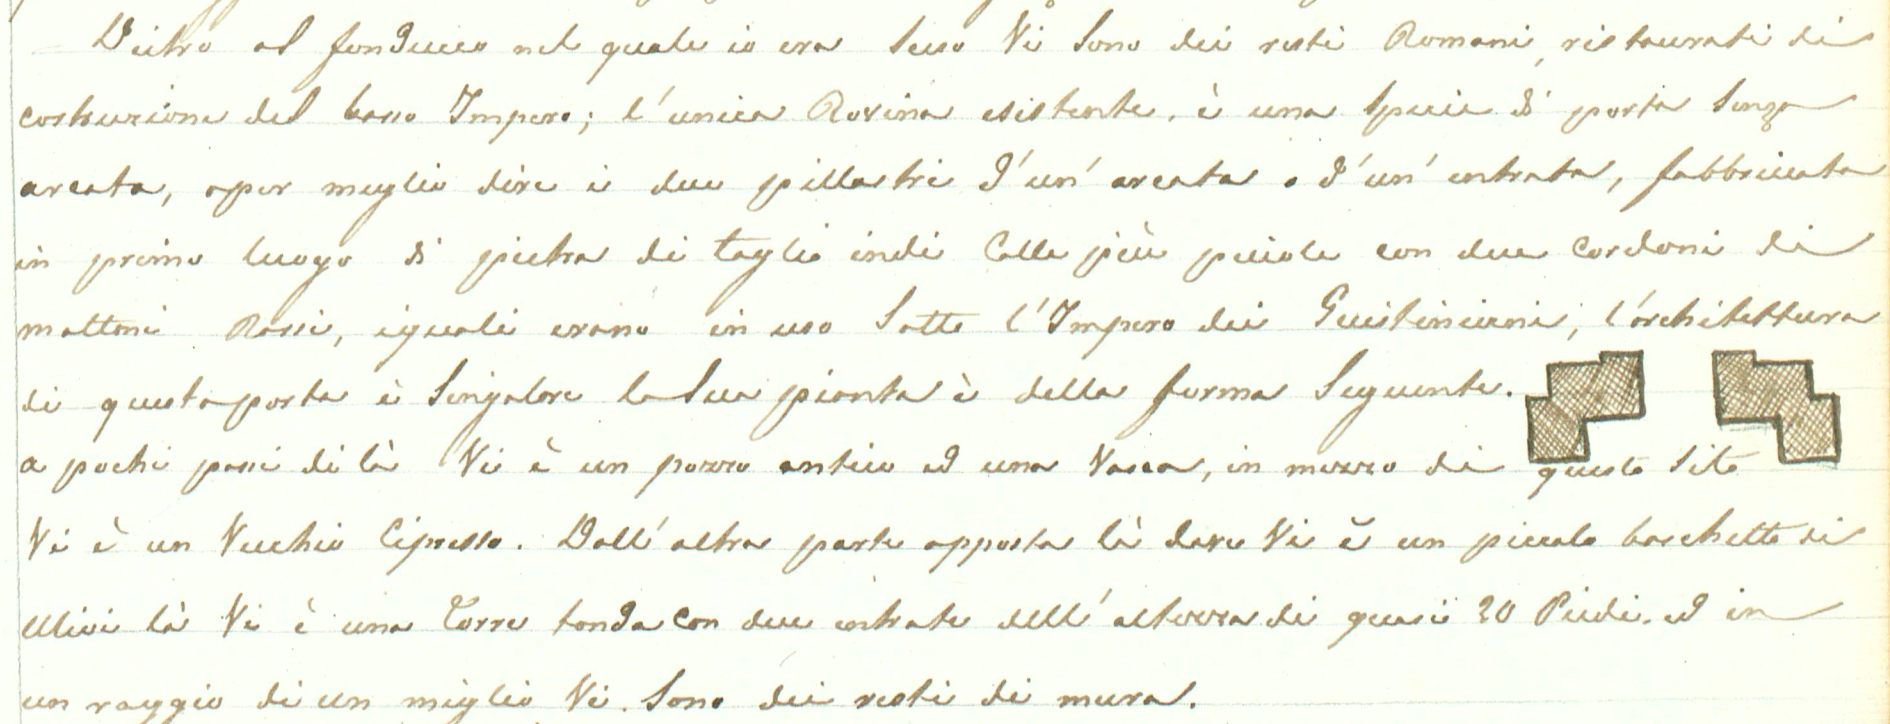 Deitro al fonducco nel quale io era Seso Vi Sono dei resti Romani, ristaurati di
costruzione del basso Impero; l'unica Rovina esistente, è una Specie di porta Senza
arcata, oper meglio dire i due pillastri d'un' arcata o d'un' entrata, fabbricata
in primo luogo di pietra di taglio indi Colle più piciole con due Cordoni di
mattoni Rossi, iquali erano in uso Sotto l'Impero dei Guistiniani; l'architettura
di questa porta è Singolare la Sua pianta è della forma Seguente.
a pochi passi di là Vi è un pozzo antico ed una Vasca, in mezzo di questo Sito
Vi è un Vecchio Cipresso. Dall'altra parte opposta là dove Vi è un piccolo boschetto di
Ulivi là Vi è una Torre tonda con due entrate dell'altezza di quasi 20 Piedi. ed in
un raggio di un miglio Vi Sono dei resti di mura.